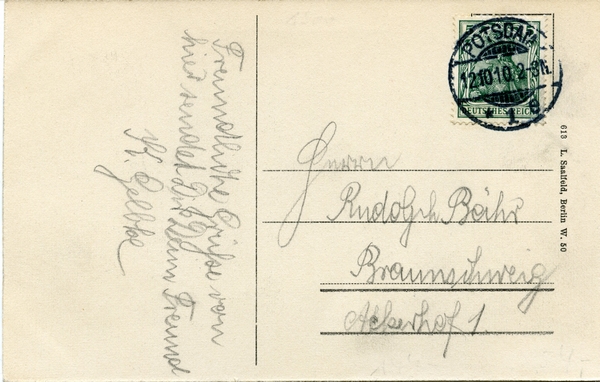 Freundliche Grüße von
hier sendet Dir Dein Freund
K. Gelbke
POTSDAM
12.10.10.2-3N.
* 1 e
DEUTSCHES REICH
Herrn
Rudolph Bähr
Braunschweig
Ackerhof 1
613 L. Saalfeld, Berlin W. 50